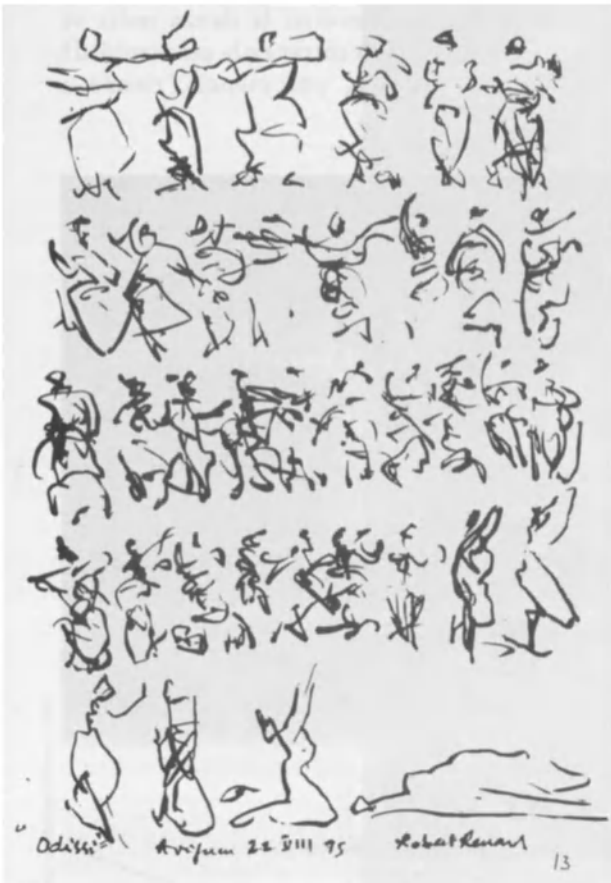 "Odissi" Avignon 22 VIII 75 Robert Renard
13